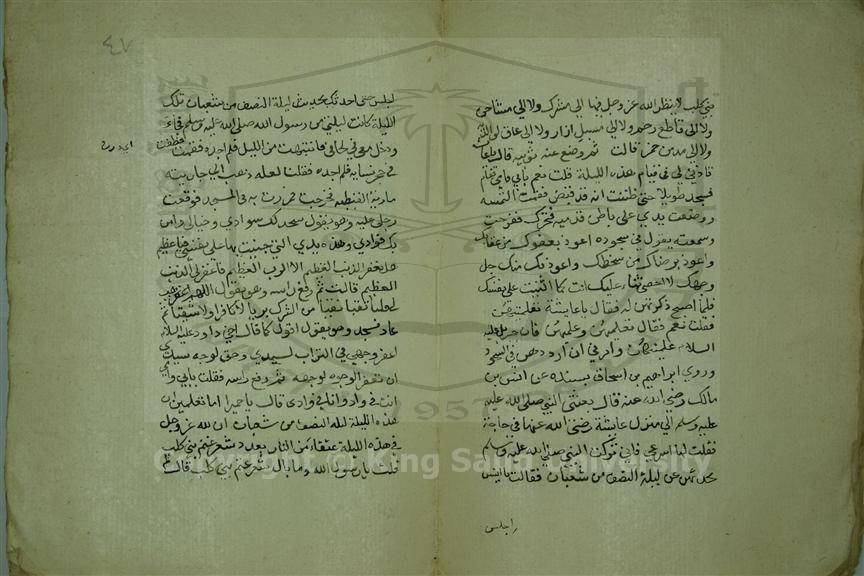 بني كلب لا ينظر الله عز وجل فيها الى مشرك ولا الى مشاحن
ولا الى قاطع رحم ولا الى مسبل ازار ولا الى عاق لوالديه
ولا الى مدمن خمر قالت ثم وضع عنه ثوبيه قال يا عائشة
تاذني لي في قيام هذه الليلة قلت نعم بابي وامي فقام
فسجد طويلا حتى ظننت انه قد قبض فقمت التمسه
ووضعت يدي على باطن قدميه فتحرك ففرحت
وسمعته يقول في سجوده اعوذ بعفوك من عقابك
واعوذ برضاك من سخطك واعوذ بك منك جل
وجهك لا احصي ثناء عليك انت كما اثنيت على نفسك
فلما اصبح ذكرتهن له فقال يا عايشة تعلمتيهن
فقلت نعم فقال تعلميهن وعلميهن فان جبريل عليه
السلام علمنيهن وامرني ان ارددهن في السجود
وروي ابراهيم بن اسحاق بسنده عن انس بن
مالك رضي الله عنه قال بعثني النبي صلى الله عليه
عليه وسلم الى منزل عايشة رضي الله عنها في حاجة
فقلت لها اسرعي فاني تركت النبي صلى الله عليه وسلم
يحدثهم عن ليلة النصف من شعبان فقالت يا انيس
اجلس
٤٧
ليلس حتى احدثك بحديث ليلة النصف من شعبان تلك
الليلة كانت ليلتي من رسول الله صلى الله عليه وسلم فجاء
ودخل معي في لحافي فانتبهت من الليل فلم اجده فقمت فطفت
في حجر نسايه فلم اجده فقلت لعله ذهب الى جاريته
مارية القبطية فخرجت فمررت به في المسجد فوقعت
رجلي عليه وهو يقول سجد لك سوادي وخيالي وامن
بك فوادي وهذه يدي التي جنيت بها على نفسي فيا عظيم
هل يغفر الذنب العظيم الا الرب العظيم فاغفر لي الذنب
العظيم قالت ثم رفع راسه وهو يقول اللهم هب
لي قلبا تقيا نقيا من الشرك بريا لا كافرا ولا شقيا ثم
عاد فسجد وهو يقول اقول كما قال اخي داود عليه السلام
اعفر وجهي في التراب لسيدي وحق لوجه سيدي
ان تعفر الوجوه لوجهه ثم رفع راسه فقلت بابي وامي
انت في واد وانا في وادي قال يا حميرا اما تعلمين ان
هذه الليلة ليلة النصف من شعبان ان الله عز وجل
في هذه الليلة عتقاء من النار بعدد شعر غنم بني كلب
قلت يا رسول الله وما بال شعر غنم بني كلب قال
Copyright © King Saud University
1957